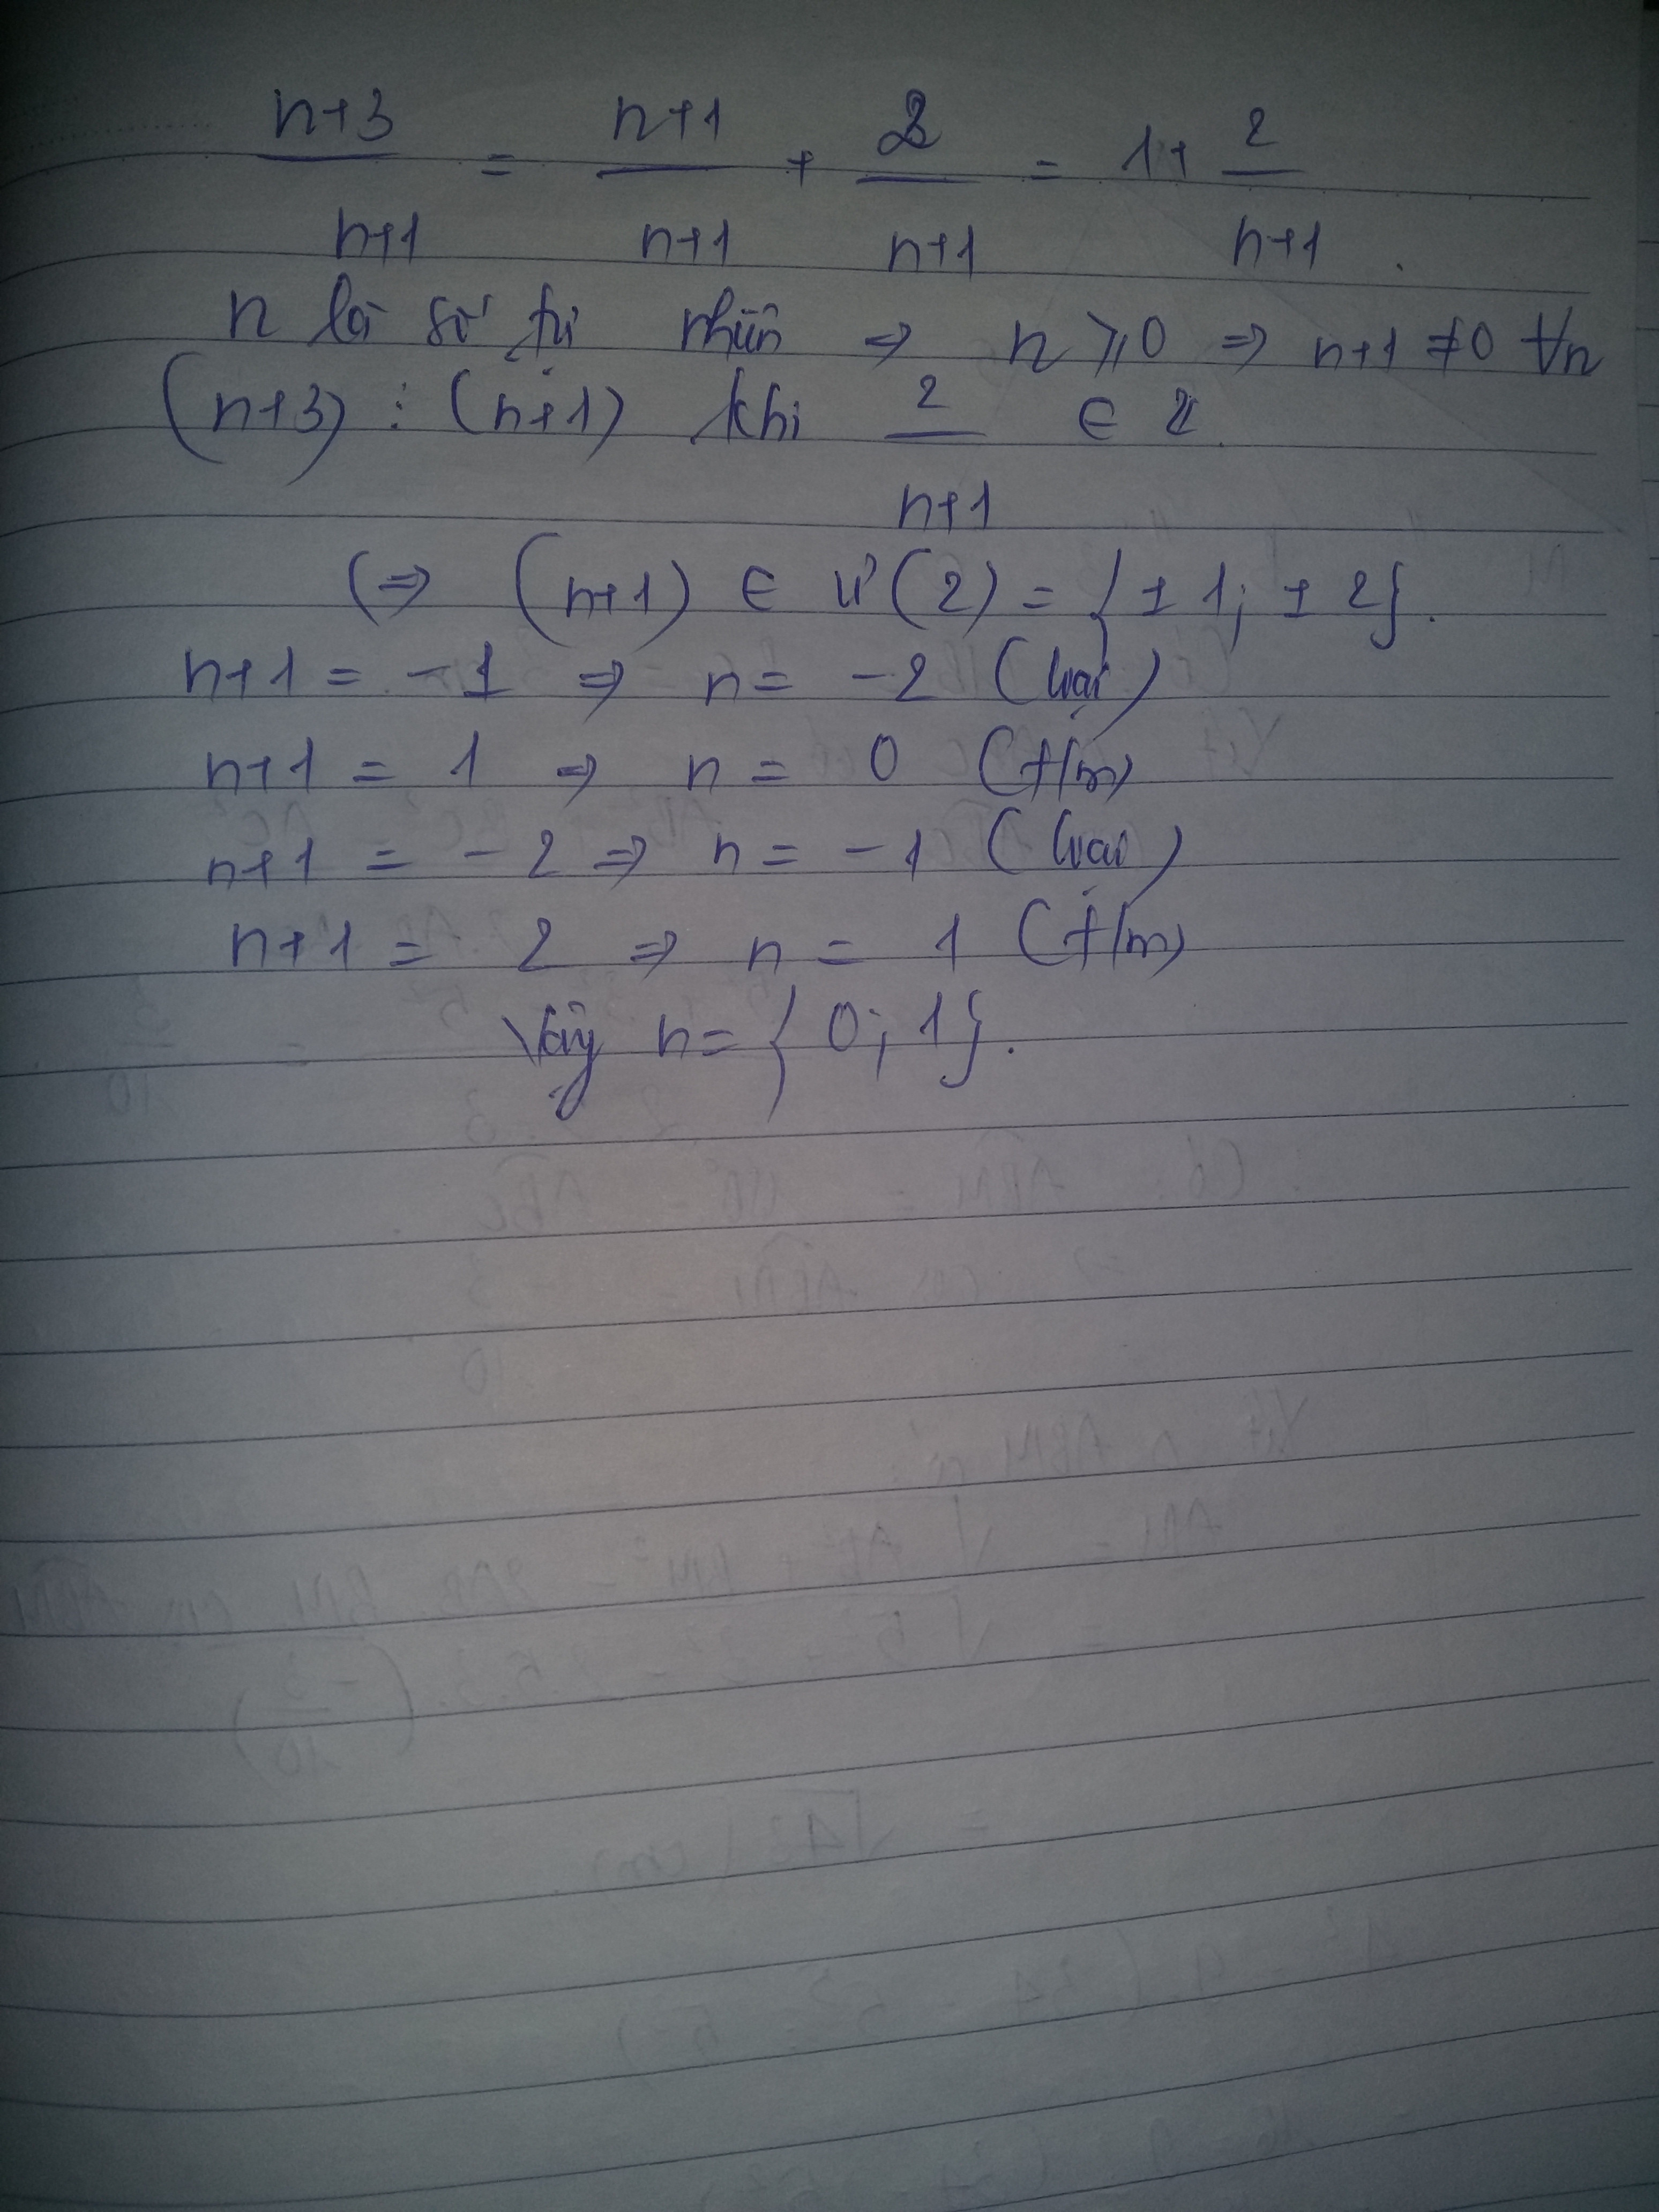 n+3/n+1 = n+1/n+1 + 2/n+1 = 1+ 2/n+1 .
n là số tự nhiên ⇒ n ⩾ 0 ⇒ n+1 ≠ 0 ∀n
(n+3) ⋮ (n+1) khi 2/n+1 ∈ Z.
(⇒ (n+1) ∈ Ư(2) = {±1; ±2}.
n+1 = -1 ⇒ n = -2 (loại)
n+1 = 1 ⇒ n = 0 (t/m)
n+1 = -2 ⇒ n = -1 (loại)
n+1 = 2 ⇒ n = 1 (t/m)
Vậy n = {0; 1}.